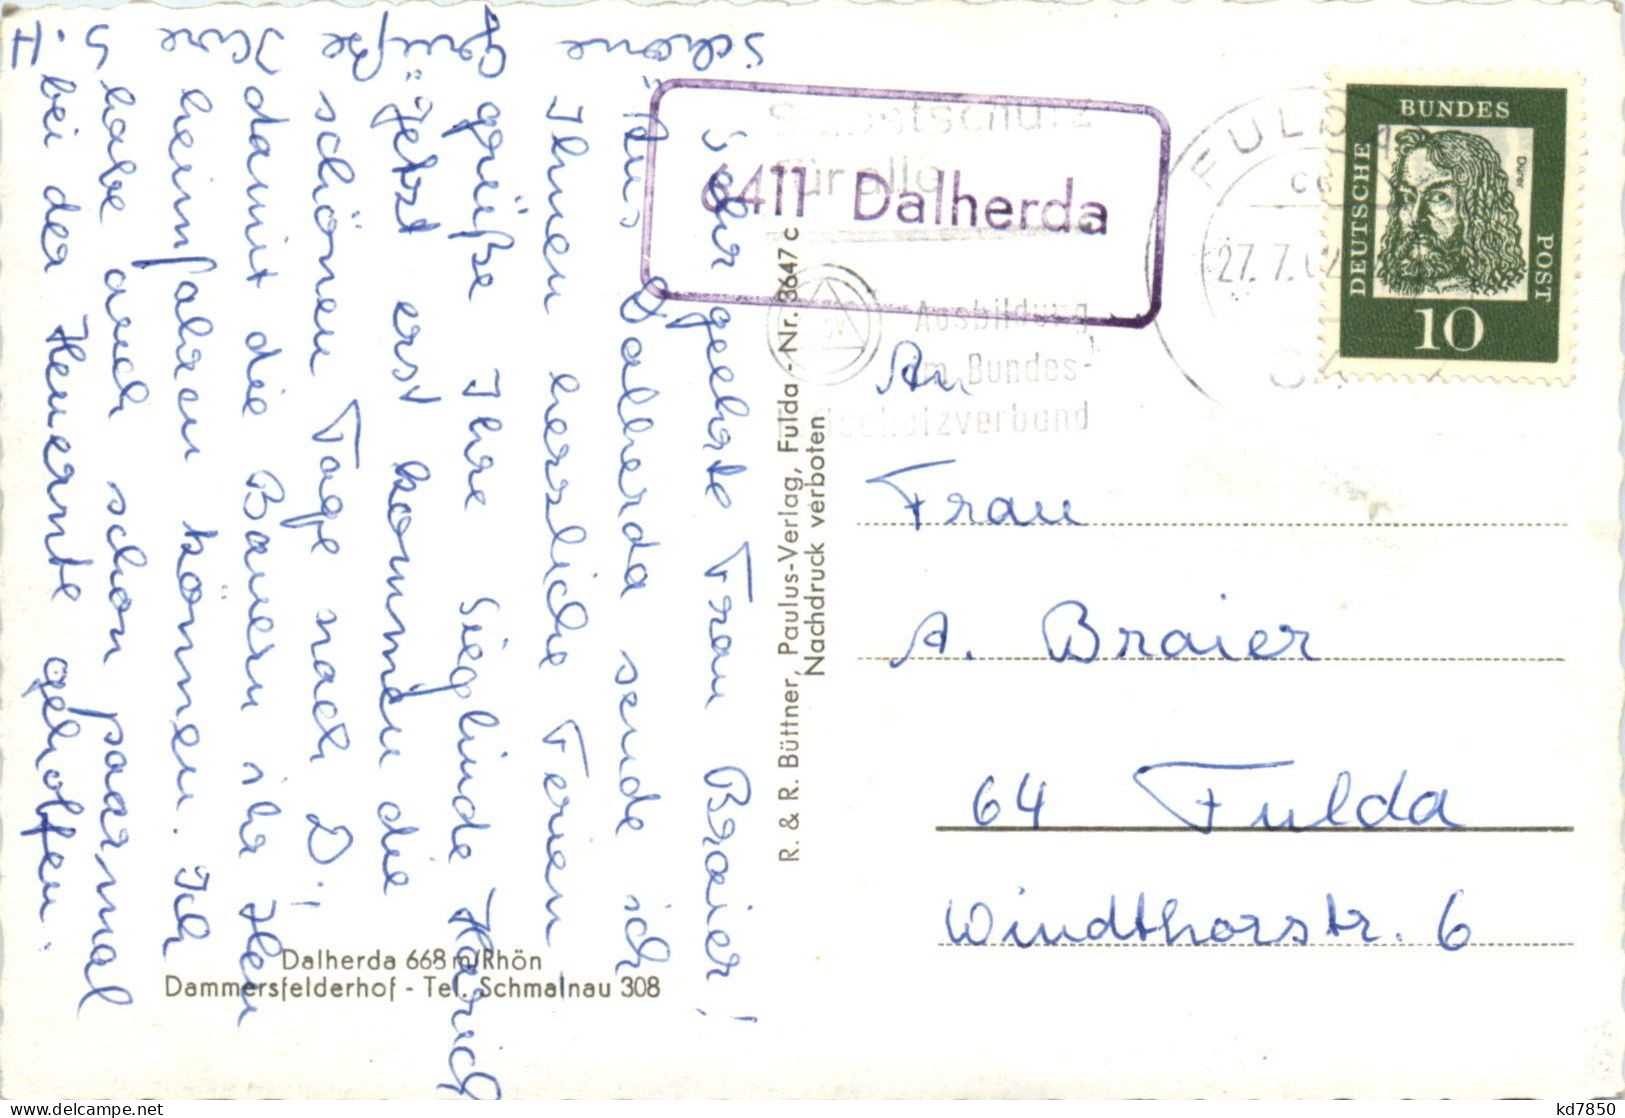 Sehr geehrte Frau Braier!
Aus Dalherda sende ich
Ihnen herzliche Ferien
grüße Ihre Sieglinde
Jetzt erst kommen die
schönen Tage nach D.,
damit die Bauern ihr Heu
heimfahren können. Ich
habe auch schon paarmal
bei der Heuernte geholfen.
Schöne
Grüße
Dalherda 668 m/Rhön
Dammersfelderhof - Tel. Schmalnau 308
R. & R. Büttner, Paulus-Verlag, Fulda - Nr. 3647 c
Nachdruck verboten
6411 Dalherda
Selbstschutz
für alle
Ausbildung
im Bundes-
luftschutzverband
FULDA
27.7.62
DEUTSCHE
BUNDES
POST
Dürer
10
An
Frau
A. Braier
64 Fulda
Windthorstr. 6
kd7850